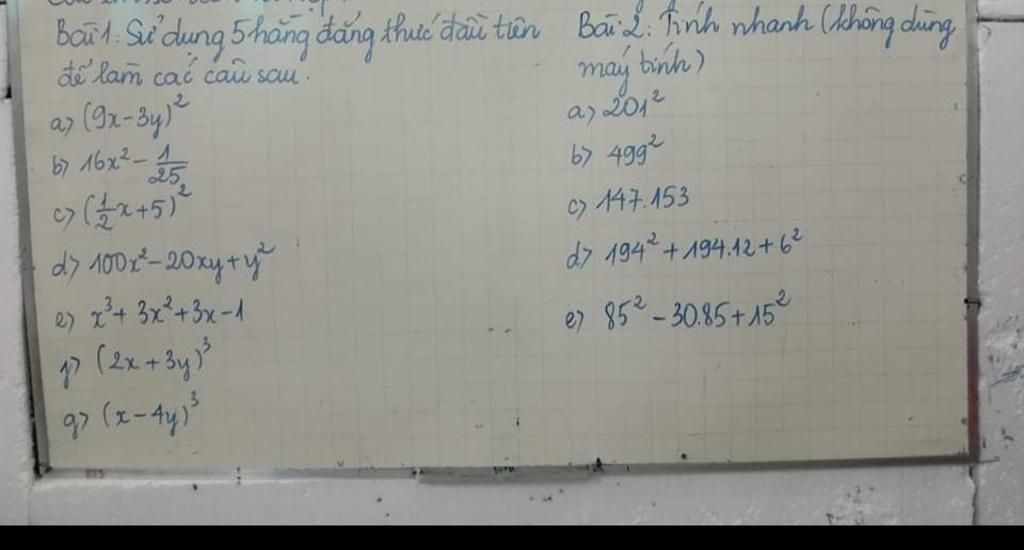 Bài 1: Sử dụng 5 hằng đẳng thức đầu tiên
để làm các câu sau.
a> (9x-3y)²
b> 16x² - 1/25
c> (1/2x+5)²
d> 100x² - 20xy + y²
e> x³ + 3x² + 3x - 1
f> (2x + 3y)³
g> (x - 4y)³
Bài 2: Tính nhanh (không dùng
máy tính)
a> 201²
b> 499²
c> 147.153
d> 194² + 194.12 + 6²
e> 85² - 30.85 + 15²